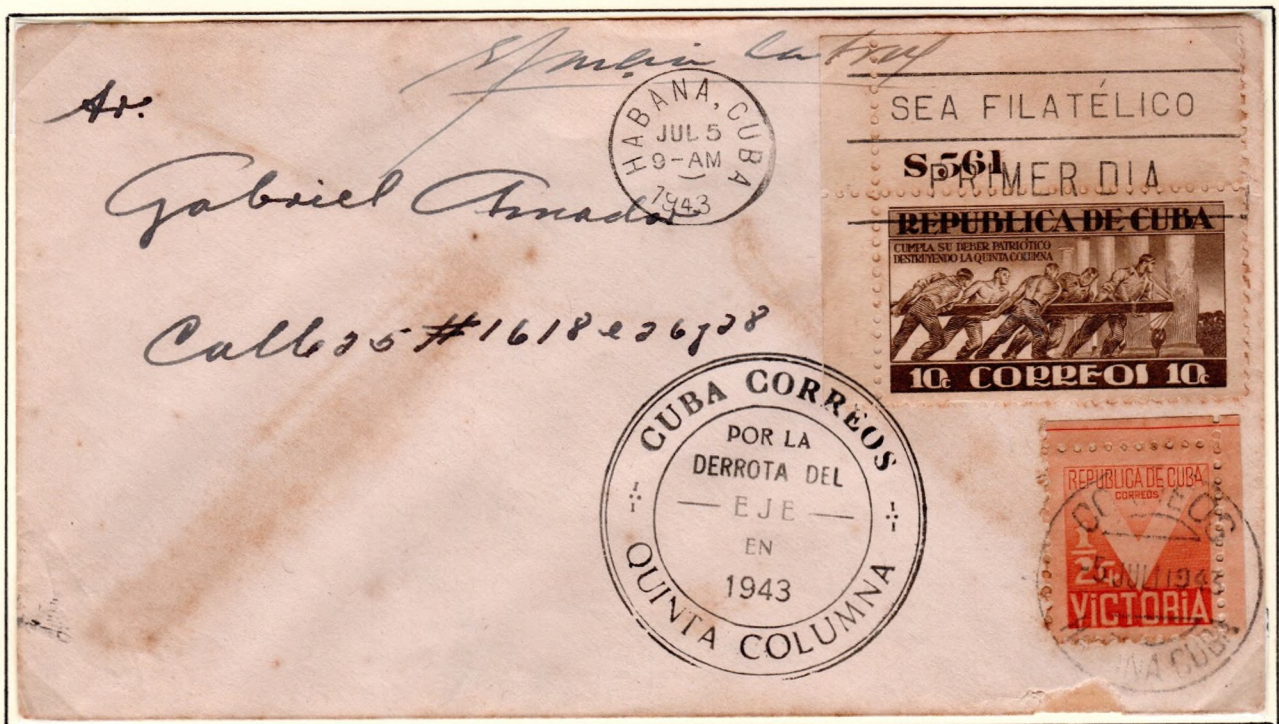 Sr.
Gabriel Amador
Calle 25 #1618 e 26 y 28
HABANA, CUBA
JUL 5
9-AM
1943
SEA FILATÉLICO
PRIMER DIA
S 561
REPUBLICA DE CUBA
CUMPLA SU DEBER PATRIÓTICO
DESTRUYENDO LA QUINTA COLUMNA
10c CORREOS 10c
CUBA CORREOS
POR LA
DERROTA DEL
EJE
EN
1943
QUINTA COLUMNA
REPUBLICA DE CUBA
CORREOS
1/2c
VICTORIA
CORREOS
5 JUL 1943
CUBA